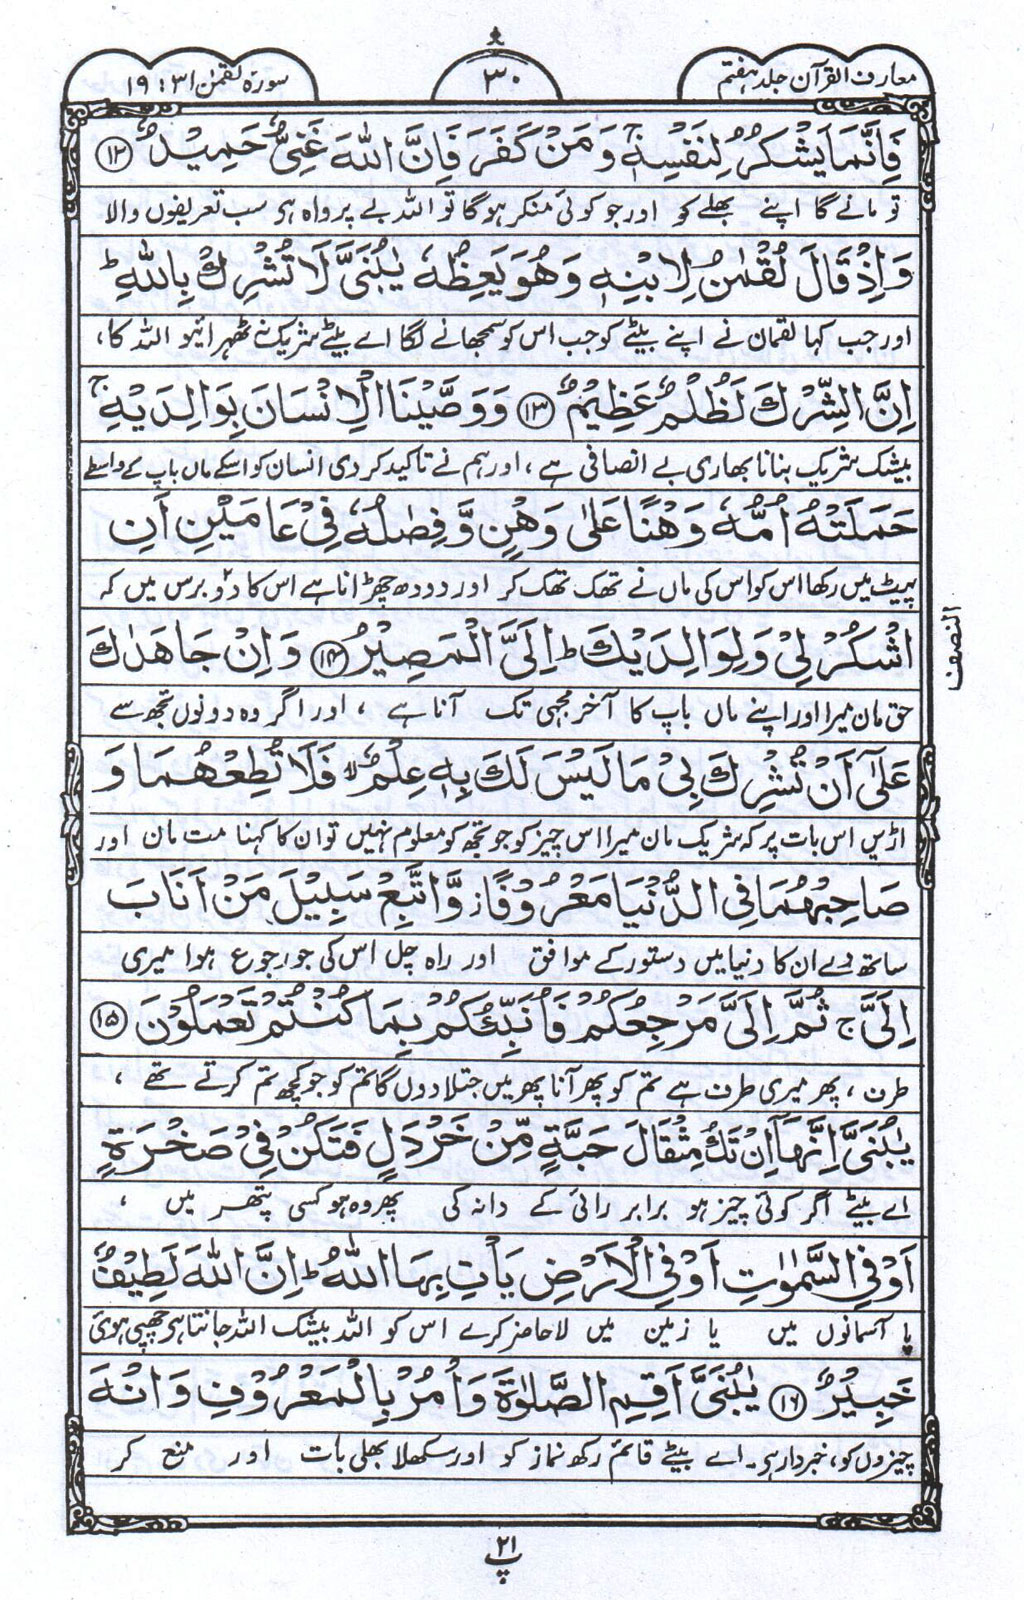 معارف القرآن جلد ہفتم
۳۰
سورۃ لقمٰن ۳۱ : ۱۹
فَاِنَّمَا يَشْكُرُ لِنَفْسِهٖ ۚ وَمَنْ كَفَرَ فَاِنَّ اللّٰهَ غَنِيٌّ حَمِيْدٌ ۝۱۲
تو مانے گا اپنے بھلے کو اور جو کوئی منکر ہوگا تو اللہ بے پرواہ ہی سب تعریفوں والا
وَاِذْ قَالَ لُقْمٰنُ لِابْنِهٖ وَهُوَ يَعِظُهٗ يٰبُنَيَّ لَا تُشْرِكْ بِاللّٰهِ ؕ
اور جب کہا لقمان نے اپنے بیٹے کو جب اس کو سمجھانے لگا اے بیٹے شریک نہ ٹھہرائیو اللہ کا ،
اِنَّ الشِّرْكَ لَظُلْمٌ عَظِيْمٌ ۝۱۳ وَوَصَّيْنَا الْاِنْسَانَ بِوَالِدَيْهِ ۚ
بیشک شریک بنانا بھاری بے انصافی ہے ، اور ہم نے تاکید کردی انسان کو اسکے ماں باپ کے واسطے
حَمَلَتْهُ اُمُّهٗ وَهْنًا عَلٰى وَهْنٍ وَّفِصٰلُهٗ فِيْ عَامَيْنِ اَنِ
پیٹ میں رکھا اس کو اس کی ماں نے تھک تھک کر اور دودھ چھڑانا ہے اس کا دو۲ برس میں کہ
اشْكُرْ لِيْ وَلِوَالِدَيْكَ ؕ اِلَيَّ الْمَصِيْرُ ۝۱۴ وَاِنْ جَاهَدٰكَ
النصف
حق مان میرا اور اپنے ماں باپ کا آخر مجھی تک آنا ہے ، اور اگر وہ دونوں تجھ سے
عَلٰٓى اَنْ تُشْرِكَ بِيْ مَا لَيْسَ لَكَ بِهٖ عِلْمٌ ۙ فَلَا تُطِعْهُمَا وَ
اڑیں اس بات پر کہ شریک مان میرا اس چیز کو جو تجھ کو معلوم نہیں تو ان کا کہنا مت مان اور
صَاحِبْهُمَا فِي الدُّنْيَا مَعْرُوْفًا ز وَّاتَّبِعْ سَبِيْلَ مَنْ اَنَابَ
ساتھ دے ان کا دنیا میں دستور کے موافق اور راہ چل اس کی جو رجوع ہوا میری
اِلَيَّ ۚ ثُمَّ اِلَيَّ مَرْجِعُكُمْ فَاُنَبِّئُكُمْ بِمَا كُنْتُمْ تَعْمَلُوْنَ ۝۱۵
طرف ، پھر میری طرف ہے تم کو پھر آنا پھر میں جتلا دوں گا تم کو جو کچھ تم کرتے تھے ،
يٰبُنَيَّ اِنَّهَآ اِنْ تَكُ مِثْقَالَ حَبَّةٍ مِّنْ خَرْدَلٍ فَتَكُنْ فِيْ صَخْرَةٍ
اے بیٹے اگر کوئی چیز ہو برابر رائی کے دانہ کی پھر وہ ہو کسی پتھر میں ،
اَوْ فِي السَّمٰوٰتِ اَوْ فِي الْاَرْضِ يَاْتِ بِهَا اللّٰهُ ؕ اِنَّ اللّٰهَ لَطِيْفٌ
یا آسمانوں میں یا زمین میں لا حاضر کرے اس کو اللہ بیشک اللہ جانتا ہی چھپی ہوئی
خَبِيْرٌ ۝۱۶ يٰبُنَيَّ اَقِمِ الصَّلٰوةَ وَاْمُرْ بِالْمَعْرُوْفِ وَانْهَ
چیزوں کو ، خبردار ہی ۔ اے بیٹے قائم رکھ نماز کو اور سکھلا بھلی بات اور منع کر
پ ۲۱